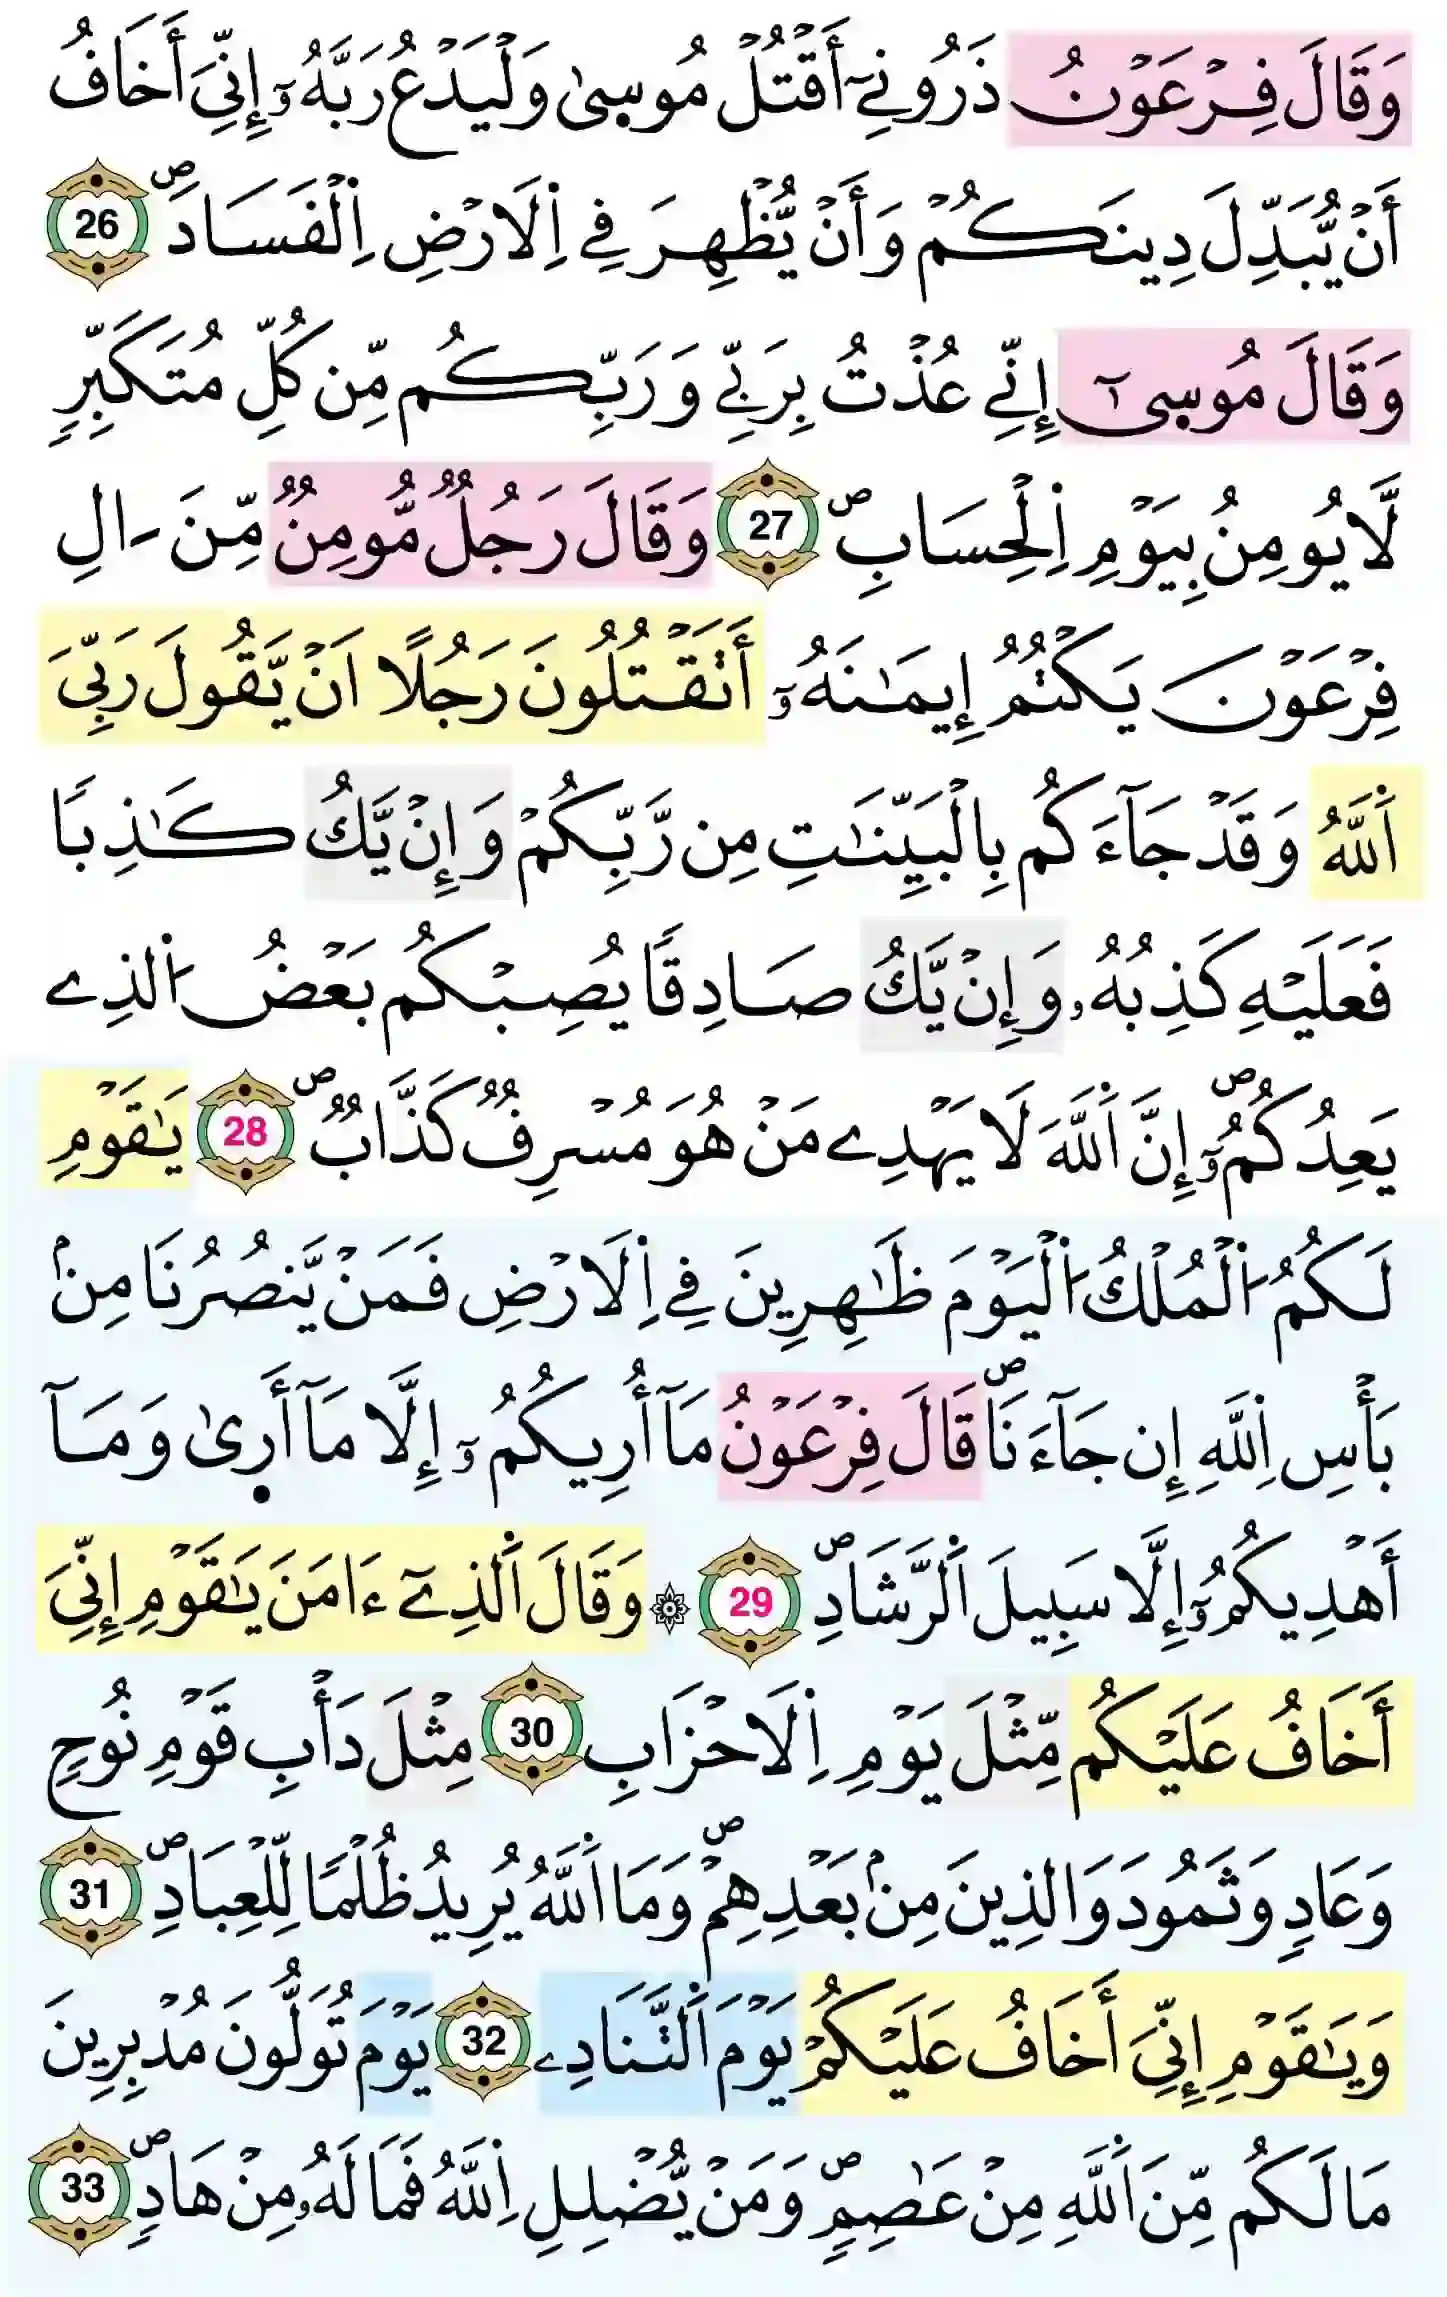 وَقَالَ فِرْعَوْنُ ذَرُونِےٓ أَقْتُلْ مُوسۭىٰ وَلْيَدْعُ رَبَّهُۥٓ إِنِّيَ أَخَافُ
أَنْ يُّبَدِّلَ دِينَكُمْ وَأَنْ يُّظْهِرَ فِے اِ۬لَارْضِ اِ۬لْفَسَادَۖ 26
وَقَالَ مُوسۭىٰٓ إِنِّے عُذْتُ بِرَبِّے وَرَبِّكُم مِّن كُلِّ مُتَكَبِّرٍ
لَّا يُومِنُ بِيَوْمِ اِ۬لْحِسَابِۖ 27 وَقَالَ رَجُلٌ مُّومِنٌ مِّنَ ءَالِ
فِرْعَوْنَ يَكْتُمُ إِيمَٰنَهُۥٓ أَتَقْتُلُونَ رَجُلًا اَنْ يَّقُولَ رَبِّيَ
اَ۬للَّهُ وَقَدْ جَآءَكُم بِالْبَيِّنَٰتِ مِن رَّبِّكُمْ وَإِنْ يَّكُ كَٰذِبًا
فَعَلَيْهِ كَذِبُهُۥ وَإِنْ يَّكُ صَادِقًا يُصِبْكُم بَعْضُ اُ۬لذِے
يَعِدُكُمُۥٓۖ إِنَّ اَ۬للَّهَ لَا يَهْدِے مَنْ هُوَ مُسْرِفٌ كَذَّابٌۖ 28 يَٰقَوْمِ
لَكُمُ اُ۬لْمُلْكُ اُ۬لْيَوْمَ ظَٰهِرِينَ فِے اِ۬لَارْضِ فَمَنْ يَّنصُرُنَا مِنۢ
بَأْسِ اِ۬للَّهِ إِن جَآءَنَاۖ قَالَ فِرْعَوْنُ مَآ أُرِيكُمُۥٓ إِلَّا مَآ أَر۪ىٰ وَمَآ
أَهْدِيكُمُۥٓ إِلَّا سَبِيلَ اَ۬لرَّشَادِۖ 29 ۞ وَقَالَ اَ۬لذِےٓ ءَامَنَ يَٰقَوْمِ إِنِّيَ
أَخَافُ عَلَيْكُم مِّثْلَ يَوْمِ اِ۬لَاحْزَابِ 30 مِثْلَ دَأْبِ قَوْمِ نُوحٍ
وَعَادٍ وَثَمُودَ وَالذِينَ مِنۢ بَعْدِهِمْۖ وَمَا اَ۬للَّهُ يُرِيدُ ظُلْمًا لِّلْعِبَادِۖ 31
وَيَٰقَوْمِ إِنِّيَ أَخَافُ عَلَيْكُمْ يَوْمَ اَ۬لتَّنَادِۦ 32 يَوْمَ تُوَلُّونَ مُدْبِرِينَ
مَا لَكُم مِّنَ اَ۬للَّهِ مِنْ عَاصِمٍۖ وَمَنْ يُّضْلِلِ اِ۬للَّهُ فَمَا لَهُۥ مِنْ هَادٍۖ 33